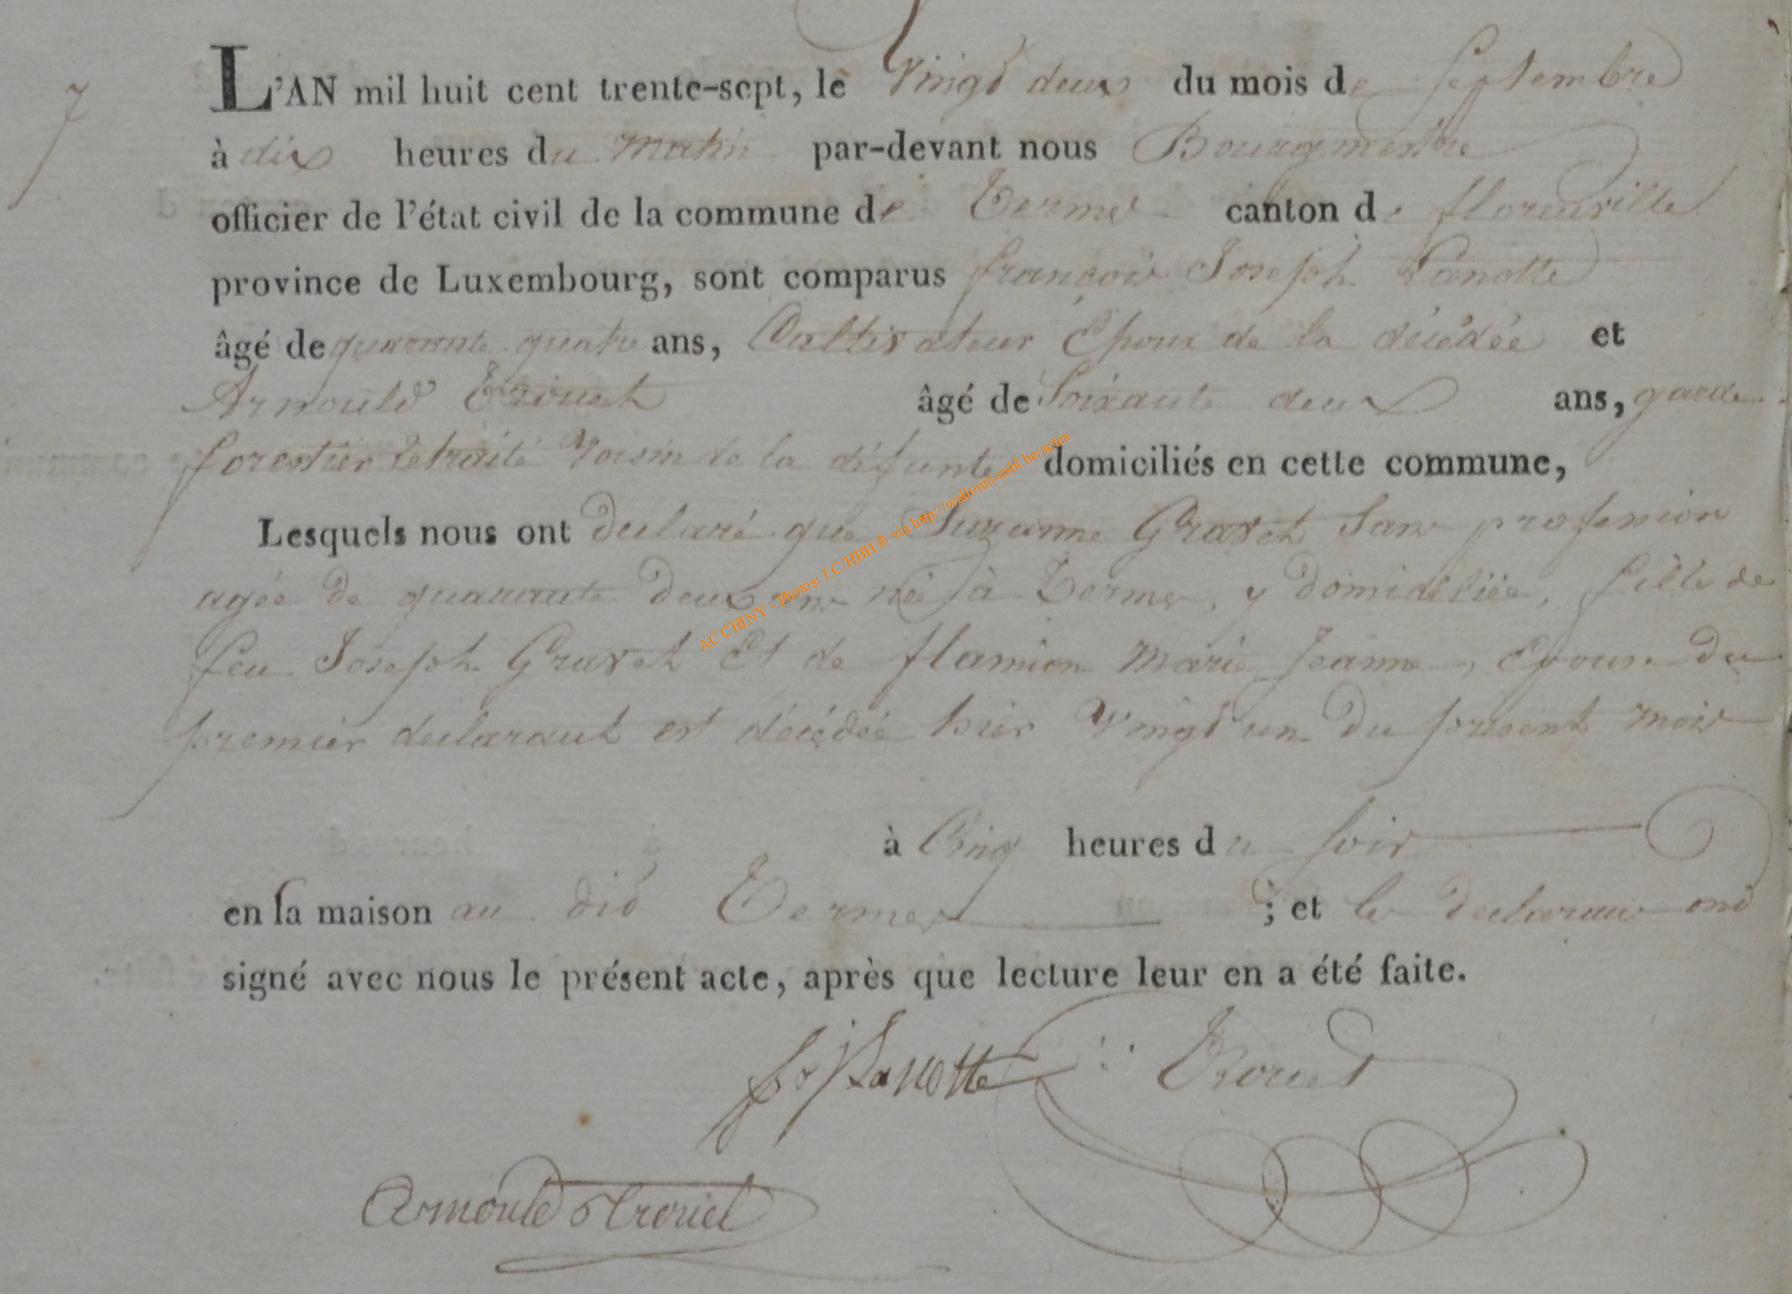 7
L'AN mil huit cent trente-sept, le Vingt deux du mois de Septembre
à dix heures du matin par-devant nous Bourgmestre
officier de l'état civil de la commune de Termes canton de florenville
province de Luxembourg, sont comparus françois Joseph Lanotte
âgé de quarante quatre ans, Cultivateur Epoux de la décédée et
Arnould Trouet âgé de Soixante deux ans, garde
forestier retraité Voisin de la défunte domiciliés en cette commune,
Lesquels nous ont declaré que Suzanne Gravet Sans profession
agée de quarante Deux ans née à Termes, y domiciliée, fille de
feu Joseph Gravet Et de flamion Marie Jeanne, Epouse du
premier declarant est décédée hier Vingt un Du présent mois
à Cinq heures du soir
en sa maison au dit Termes ; et les declarans ont
signé avec nous le présent acte, après que lecture leur en a été faite.
fs j Lanotte Trouet
Arnould Trouet
AC CHINY - Photos: J.C/HBH ® via